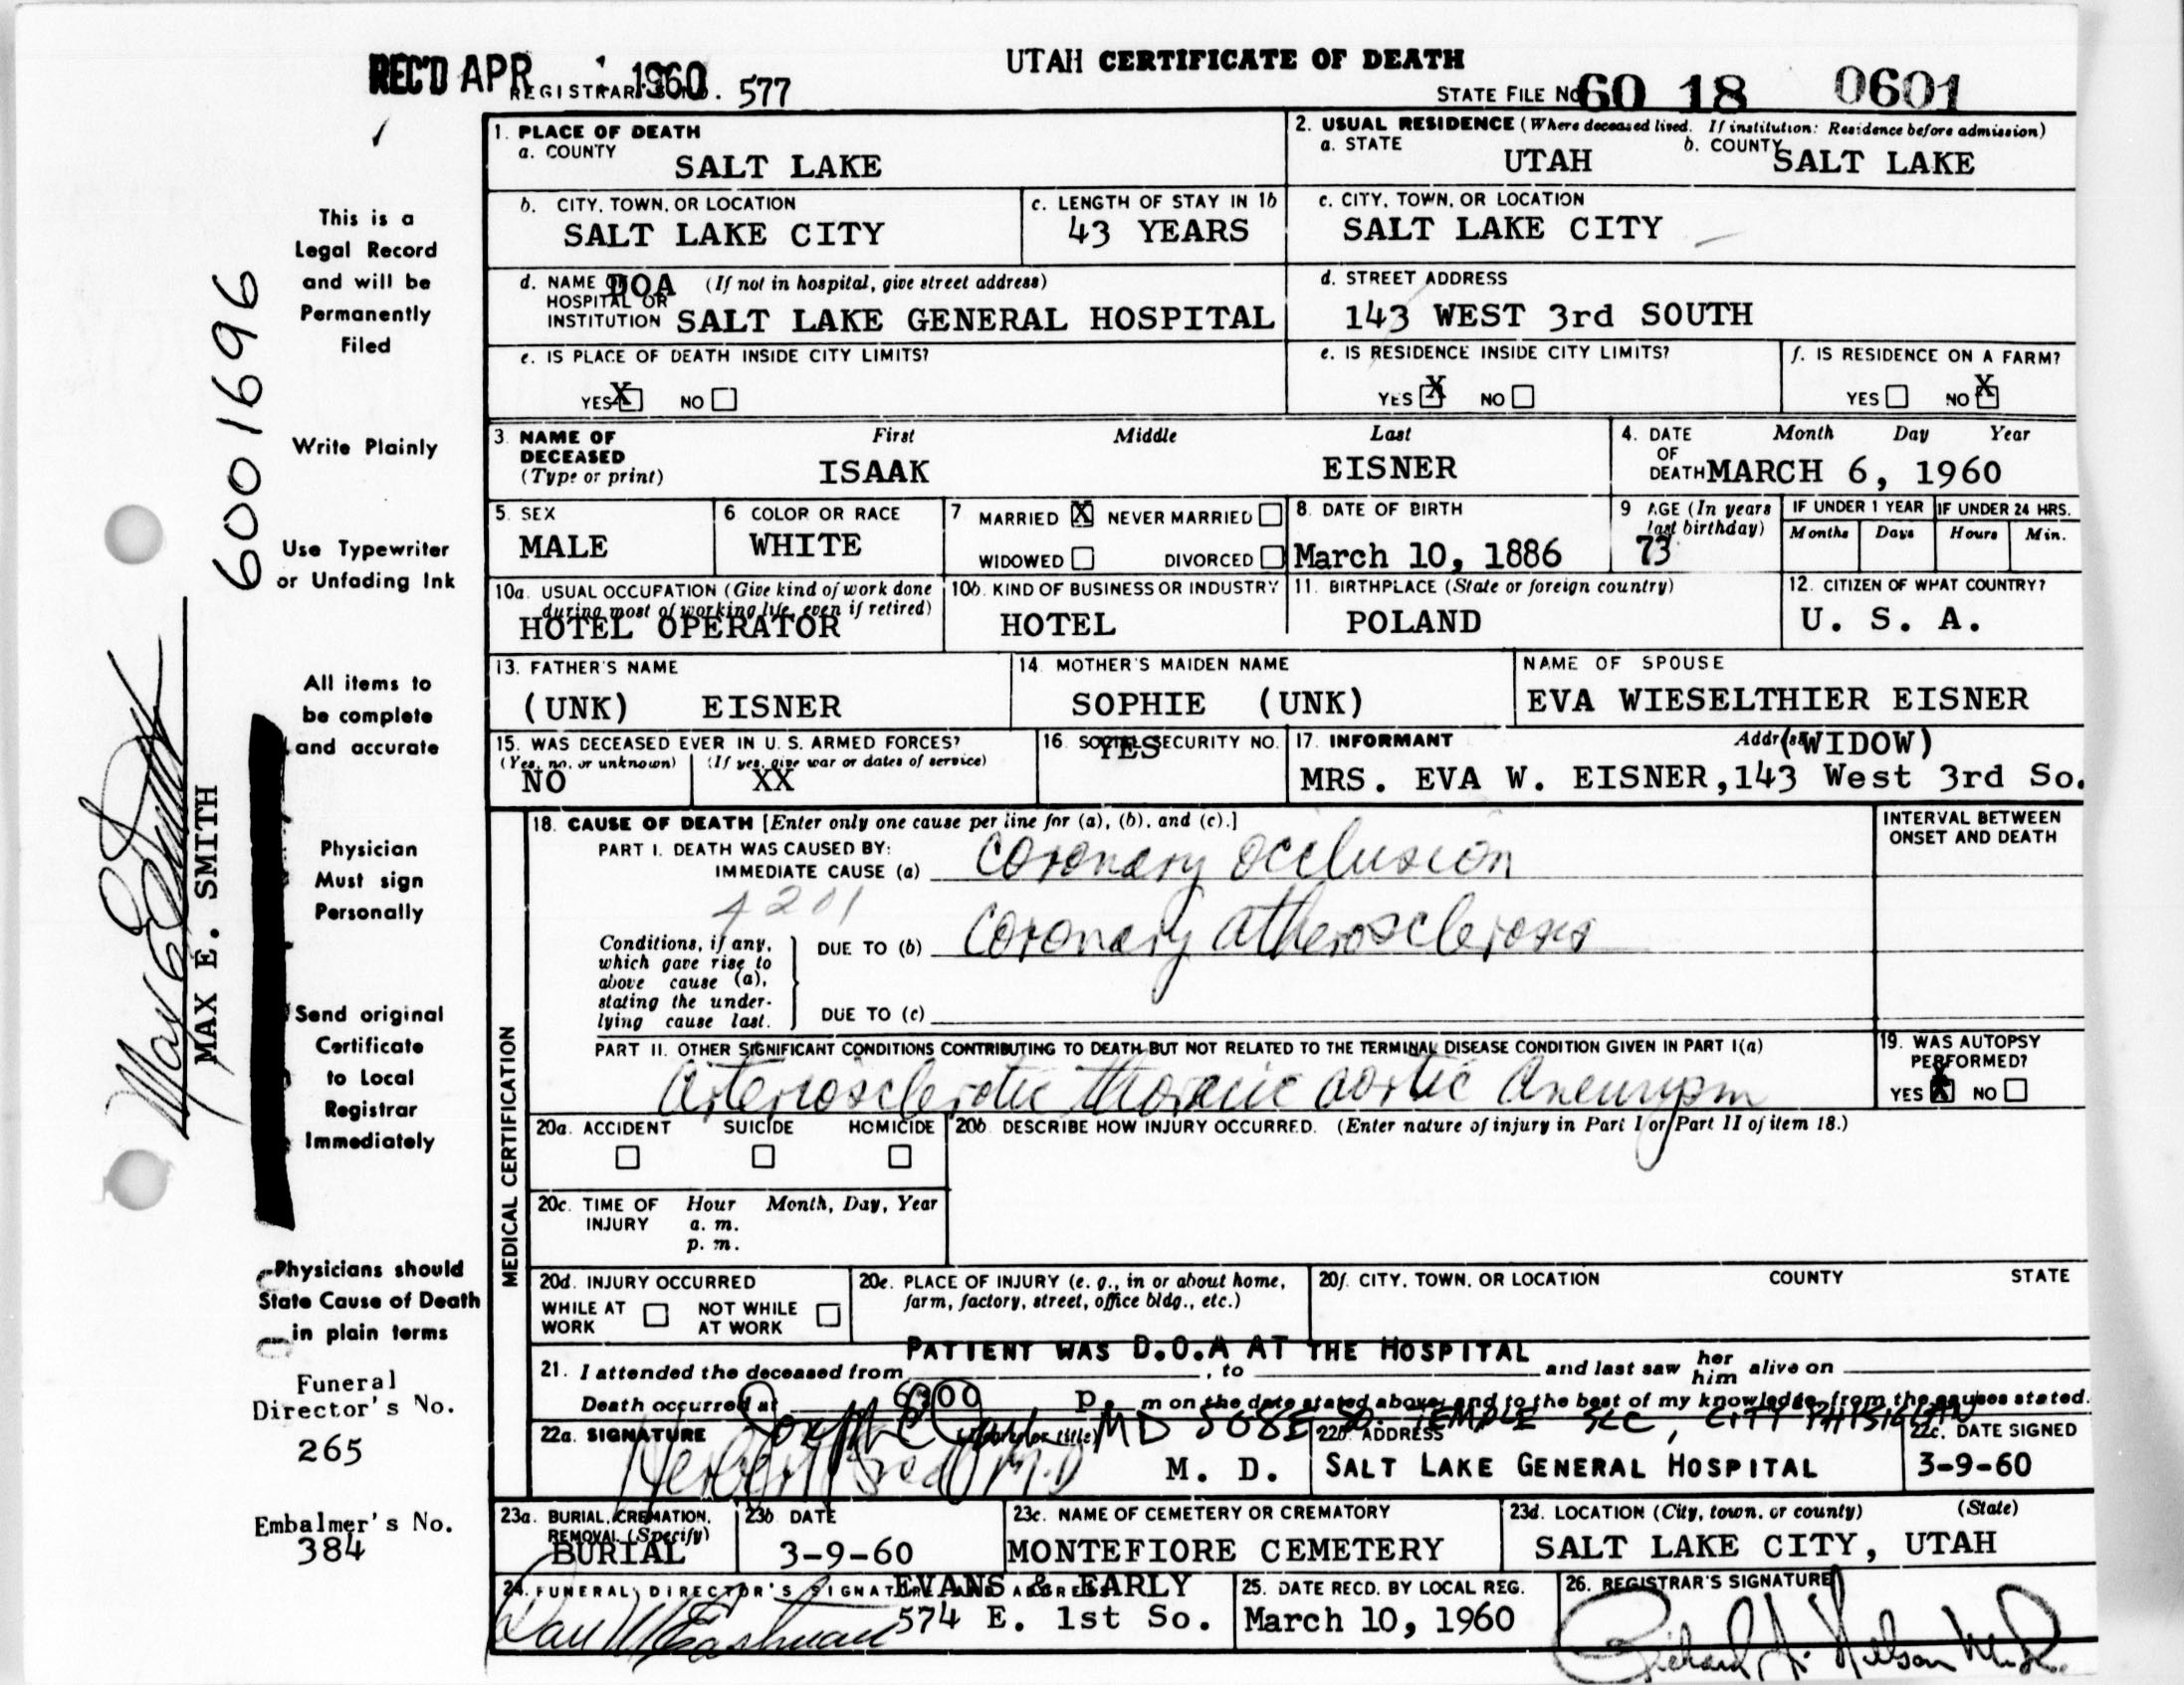 UTAH CERTIFICATE OF DEATH
REC'D APR 1960
REGISTRAR'S NO. 577
STATE FILE NO. 60 18 0601
1. PLACE OF DEATH
a. COUNTY
SALT LAKE
2. USUAL RESIDENCE (Where deceased lived. If institution: Residence before admission)
a. STATE UTAH b. COUNTY SALT LAKE
b. CITY, TOWN, OR LOCATION
SALT LAKE CITY
c. LENGTH OF STAY IN 1b
43 YEARS
c. CITY, TOWN, OR LOCATION
SALT LAKE CITY
d. NAME OF HOSPITAL OR INSTITUTION (If not in hospital, give street address)
DOA
SALT LAKE GENERAL HOSPITAL
d. STREET ADDRESS
143 WEST 3rd SOUTH
e. IS PLACE OF DEATH INSIDE CITY LIMITS?
YES X NO
e. IS RESIDENCE INSIDE CITY LIMITS?
YES X NO
f. IS RESIDENCE ON A FARM?
YES NO X
3. NAME OF DECEASED (Type or print)
First Middle Last
ISAAK EISNER
4. DATE OF DEATH Month Day Year
MARCH 6, 1960
5. SEX
MALE
6. COLOR OR RACE
WHITE
7. MARRIED X NEVER MARRIED
WIDOWED DIVORCED
8. DATE OF BIRTH
March 10, 1886
9. AGE (In years last birthday)
73
IF UNDER 1 YEAR
Months Days
IF UNDER 24 HRS.
Hours Min.
10a. USUAL OCCUPATION (Give kind of work done during most of working life, even if retired)
HOTEL OPERATOR
10b. KIND OF BUSINESS OR INDUSTRY
HOTEL
11. BIRTHPLACE (State or foreign country)
POLAND
12. CITIZEN OF WHAT COUNTRY?
U. S. A.
13. FATHER'S NAME
(UNK) EISNER
14. MOTHER'S MAIDEN NAME
SOPHIE (UNK)
NAME OF SPOUSE
EVA WIESELTHIER EISNER
15. WAS DECEASED EVER IN U. S. ARMED FORCES?
(Yes, no, or unknown) (If yes, give war or dates of service)
NO XX
16. SOCIAL SECURITY NO.
YES
17. INFORMANT Address
(WIDOW)
MRS. EVA W. EISNER, 143 West 3rd So.
MEDICAL CERTIFICATION
18. CAUSE OF DEATH [Enter only one cause per line for (a), (b), and (c).]
INTERVAL BETWEEN ONSET AND DEATH
PART I. DEATH WAS CAUSED BY:
IMMEDIATE CAUSE (a) Coronary occlusion
4201
Conditions, if any, which gave rise to above cause (a), stating the underlying cause last.
DUE TO (b) Coronary atherosclerosis
DUE TO (c)
PART II. OTHER SIGNIFICANT CONDITIONS CONTRIBUTING TO DEATH BUT NOT RELATED TO THE TERMINAL DISEASE CONDITION GIVEN IN PART I(a)
Arteriosclerotic thoracic aortic aneurysm
19. WAS AUTOPSY PERFORMED?
YES X NO
20a. ACCIDENT SUICIDE HOMICIDE
20b. DESCRIBE HOW INJURY OCCURRED. (Enter nature of injury in Part I or Part II of item 18.)
20c. TIME OF INJURY Hour Month, Day, Year
a. m.
p. m.
20d. INJURY OCCURRED
WHILE AT WORK NOT WHILE AT WORK
20e. PLACE OF INJURY (e. g., in or about home, farm, factory, street, office bldg., etc.)
20f. CITY, TOWN, OR LOCATION COUNTY STATE
PATIENT WAS D.O.A AT THE HOSPITAL
21. I attended the deceased from , to and last saw her him alive on
Death occurred at 6:00 p. m on the date stated above; and to the best of my knowledge, from the causes stated.
MD 508 E SO. TEMPLE SLC, CITY PHYSICIAN
22a. SIGNATURE (Degree or title)
M.D
M. D.
22b. ADDRESS
SALT LAKE GENERAL HOSPITAL
22c. DATE SIGNED
3-9-60
23a. BURIAL, CREMATION, REMOVAL (Specify)
BURIAL
23b. DATE
3-9-60
23c. NAME OF CEMETERY OR CREMATORY
MONTEFIORE CEMETERY
23d. LOCATION (City, town, or county) (State)
SALT LAKE CITY, UTAH
24. FUNERAL DIRECTOR'S SIGNATURE AND ADDRESS
EVANS & EARLY
574 E. 1st So.
25. DATE RECD. BY LOCAL REG.
March 10, 1960
26. REGISTRAR'S SIGNATURE
This is a
Legal Record
and will be
Permanently
Filed
Write Plainly
Use Typewriter
or Unfading Ink
All items to
be complete
and accurate
Physician
Must sign
Personally
Send original
Certificate
to Local
Registrar
Immediately
Physicians should
State Cause of Death
in plain terms
Funeral
Director's No.
265
Embalmer's No.
384
6001696
Max E Smith
MAX E. SMITH